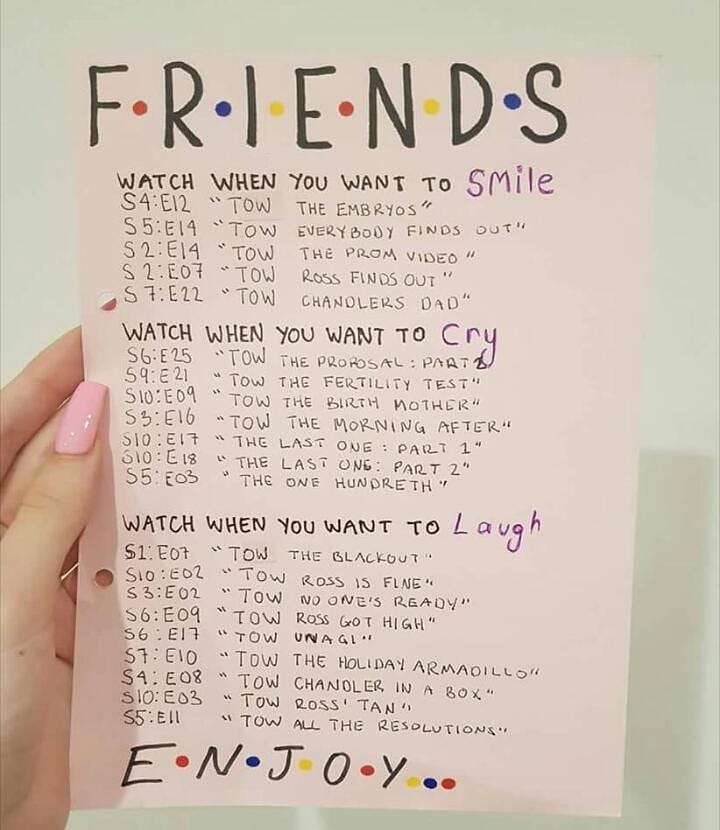 F•R•I•E•N•D•S
WATCH WHEN YOU WANT TO SMile
S4:E12 "TOW THE EMBRYOS"
S5:E14 "TOW EVERYBODY FINDS OUT"
S2:E14 "TOW THE PROM VIDEO"
S2:E07 "TOW ROSS FINDS OUT"
S7:E22 "TOW CHANDLERS DAD"
WATCH WHEN YOU WANT TO Cry
S6:E25 "TOW THE PROPOSAL: PART2
S9:E21 "TOW THE FERTILITY TEST"
S10:E09 "TOW THE BIRTH MOTHER"
S3:E16 "TOW THE MORNING AFTER"
S10:E17 "THE LAST ONE: PART 1"
S10:E18 "THE LAST ONE: PART 2"
S5:E03 "THE ONE HUNDRETH"
WATCH WHEN YOU WANT TO Laugh
S1:E07 "TOW THE BLACKOUT"
S10:E02 "TOW ROSS IS FINE"
S3:E02 "TOW NO ONE'S READY"
S6:E09 "TOW ROSS GOT HIGH"
S6:E17 "TOW UNAGI"
S7:E10 "TOW THE HOLIDAY ARMADILLO"
S4:E08 "TOW CHANDLER IN A BOX"
S10:E03 "TOW ROSS' TAN"
S5:E11 "TOW ALL THE RESOLUTIONS"
E•N•J•O•Y...